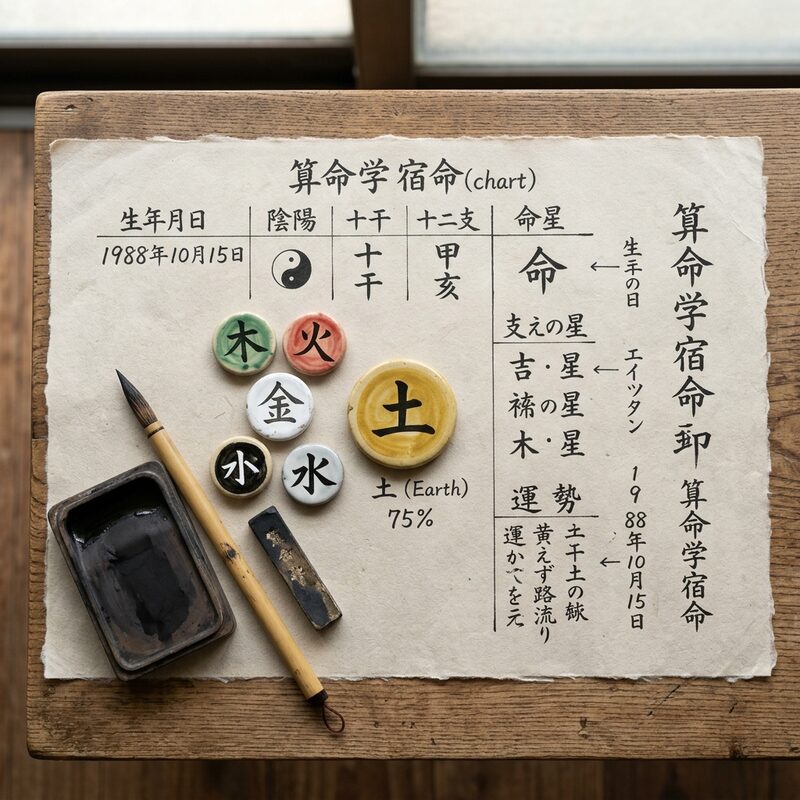 算命学宿命(chart)
生年月日 陰陽 十干 十二支 命星
1988年10月15日 十干 甲亥 命
支えの星
吉・星
の星
木・星
運勢
土干土の
黄えず路流り
運か を元
木 火
金 土
小 水
土 (Earth)
75%
の日
エイツタン
1988年10月15日
算命学宿命 算命学宿命